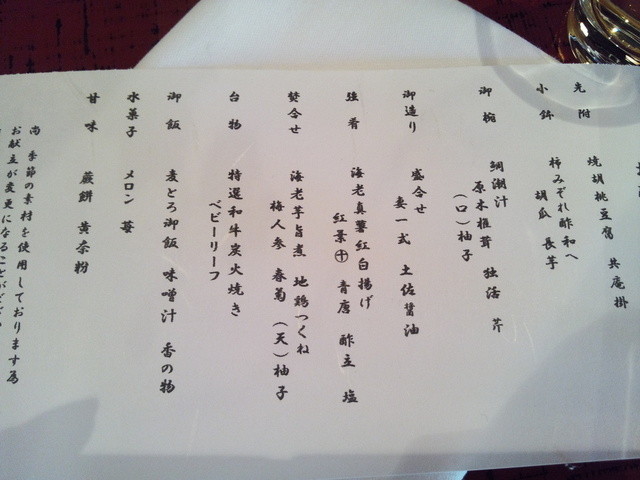 先附 焼胡桃豆腐 共庵掛
小鉢 柿みぞれ酢和へ
胡瓜 長芋
御椀 鯛潮汁
原木椎茸 独活 芹
(口)柚子
御造り 盛合せ
妻一式 土佐醤油
強肴 海老真薯紅白揚げ
紅葉㊉ 青唐 酢立 塩
焚合せ 海老芋旨煮 地鶏つくね
梅人参 春菊 (天)柚子
台物 特選和牛炭火焼き
ベビーリーフ
御飯 麦とろ御飯 味噌汁 香の物
水菓子 メロン 苺
甘味 蕨餅 黄奈粉
尚 季節の素材を使用しております為
お献立が変更になることがござい